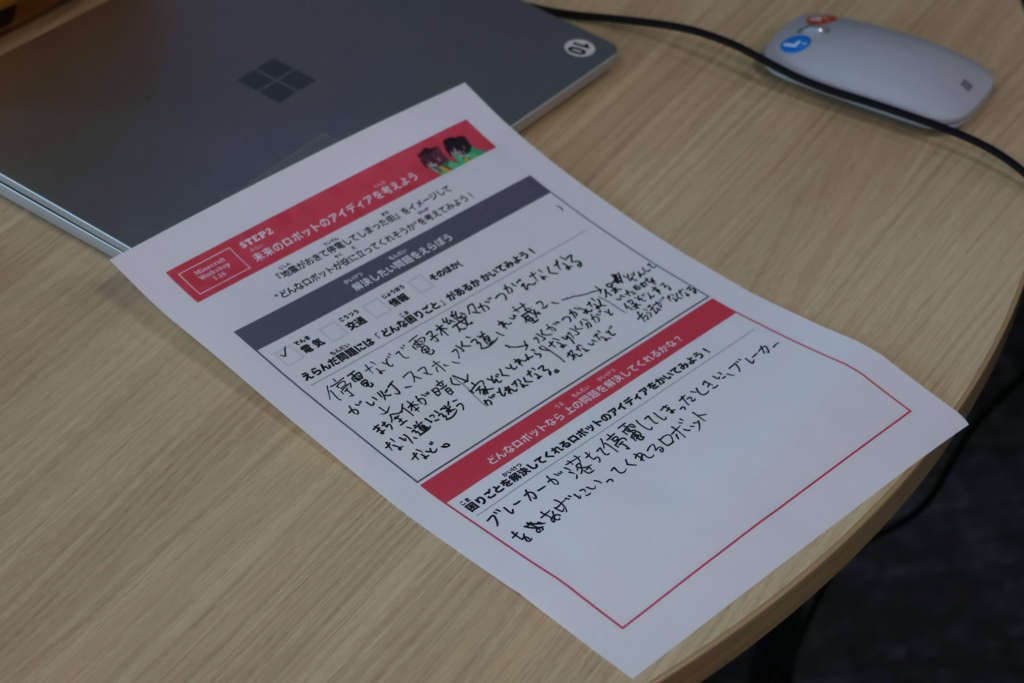 10
STEP2
未来のロボットのアイディアを考えよう
Minecraft
Workshop
『地震がおきて停電してしまった街』をイメージして
“どんなロボットが役に立ってくれそうか”を考えてみよう！
解決したい問題をえらぼう
✓ 電気 交通 情報 そのほか(
えらんだ問題には「どんな困りごと」があるかかいてみよう！
停電などで電子機々がつかえなくなる
がい灯、スマホ、水道、れい蔵こ
まち全体が暗く
なり、道に迷う
など。
家ぞくとれんらく
がとれなくなる。
どんなロボットなら上の問題を解決してくれるかな？
困りごとを解決してくれるロボットのアイディアをかいてみよう！
ブレーカーが落ちて停電してしまったときに、ブレーカー
をあげにいってくれるロボット